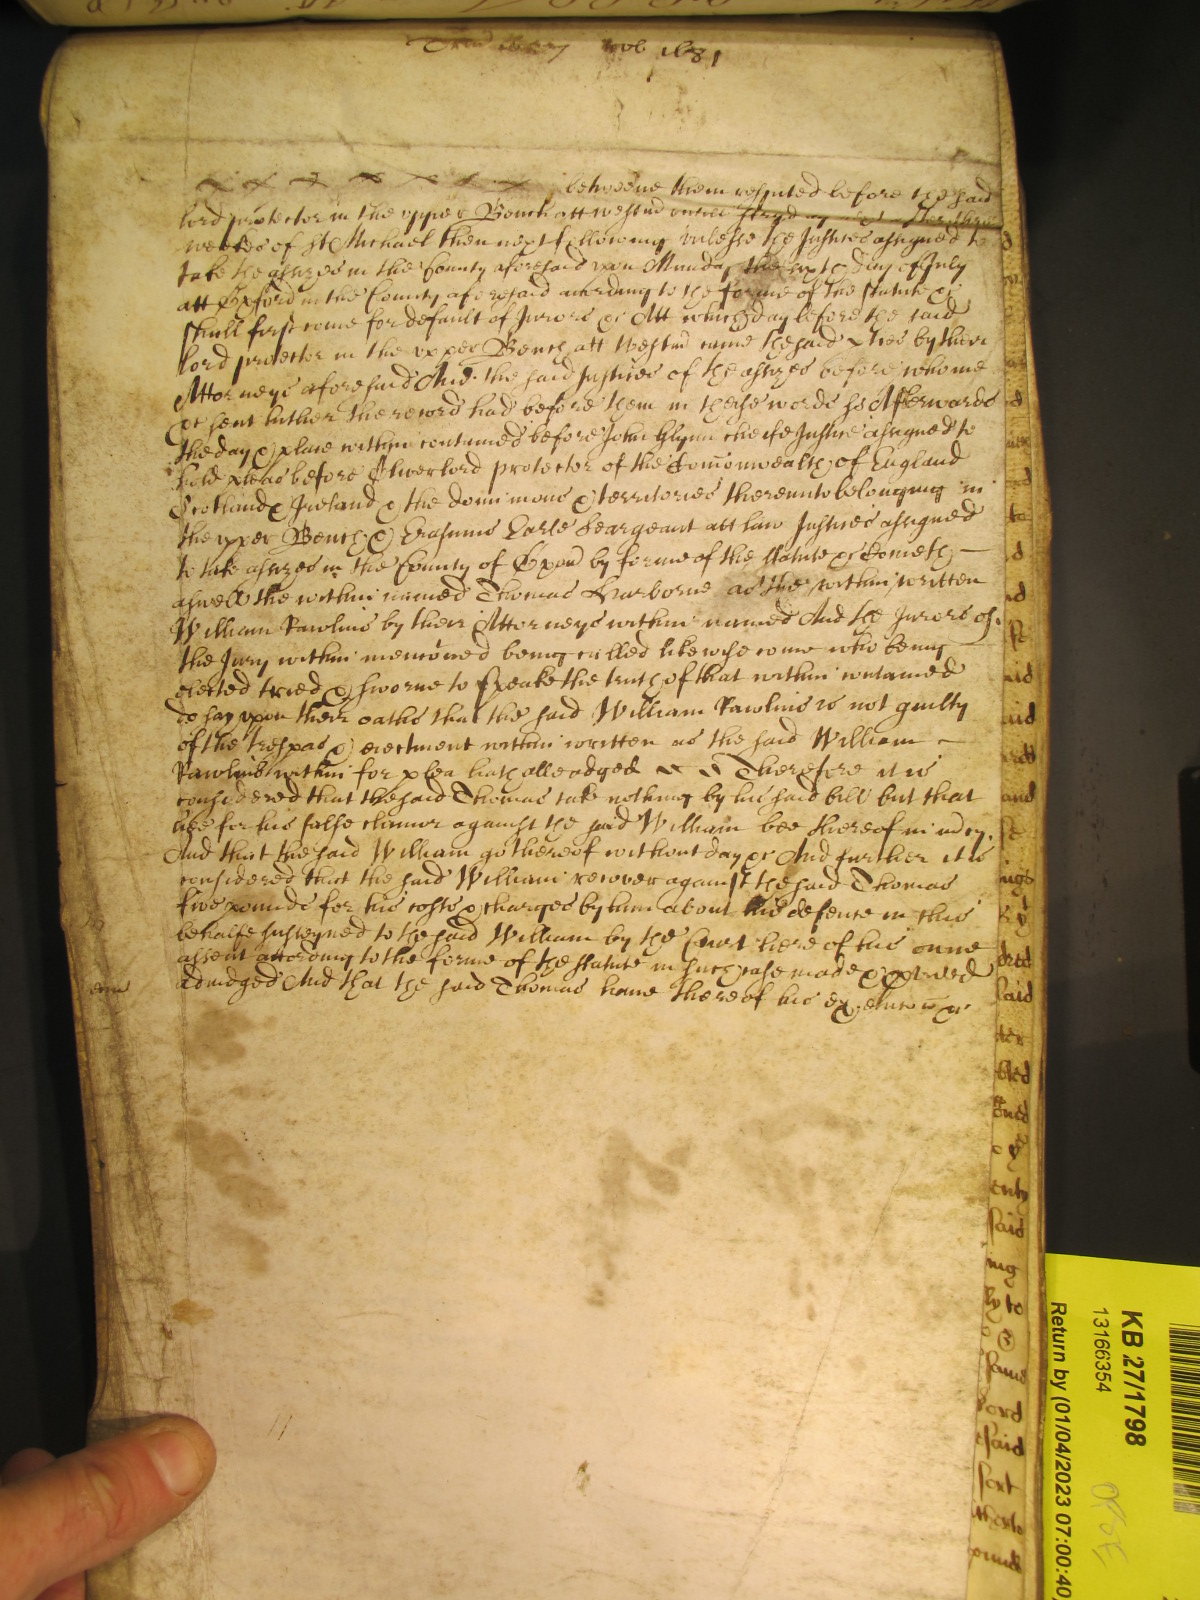 betweene them respited before the said
lord protector in the upper Bench att Westm untill three
weekes of St Michael then next following unlesse the Justices assigned to
take the assizes in the County aforesaid upon Munday the day of July
att Oxford in the County aforesaid according to the forme of the statute &c
shall first come for default of Jurors &c Att which day before the said
lord protector in the upper Bench att Westm came the said pties by their
Attorneys aforesaid And the said Justices of the assizes before whome
&c sent hither the record had before them in these words ss Afterwards
the day & place within contained before John Glynn cheife Justice assigned to
hold pleas before Oliver lord protector of the Comonwealth of England
Scotland & Ireland & the dominions & territories thereunto belonging in
the upper Bench & Erasmus Earle Seargeant att law Justices assigned
to take assizes in the County of Oxon by forme of the statute &c Cometh
aswell the within named Thomas Harborne as the within written
William Rawlins by their Attorneys within named And the Jurors of
the Jury within menconed being called likewise come who being
elected tried & sworne to speake the truth of that within contained
do say upon their oaths that the said William Rawlins is not guilty
of the trespas & eiectment within written as the said William
Rawlins within for plea hath alleadged Therefore it is
considered that the said Thomas take nothing by his said bill but that
hee for his false clamor against the said William bee thereof in mercy
And that the said William go thereof without day &c And further it is
considered that the said William recover against the said Thomas
five pounds for his costs & charges by him about his defence in this
behalfe susteyned to the said William by the Court here of his owne
assent according to the forme of the statute in such case made & pvided
adiudged And that the said Thomas have thereof his execution &c
said
said
ings
said
bled
said
ing
ly to
same
lord
said
sort
KB 27/1798
13166354
Return by (01/04/2023 07:00:40